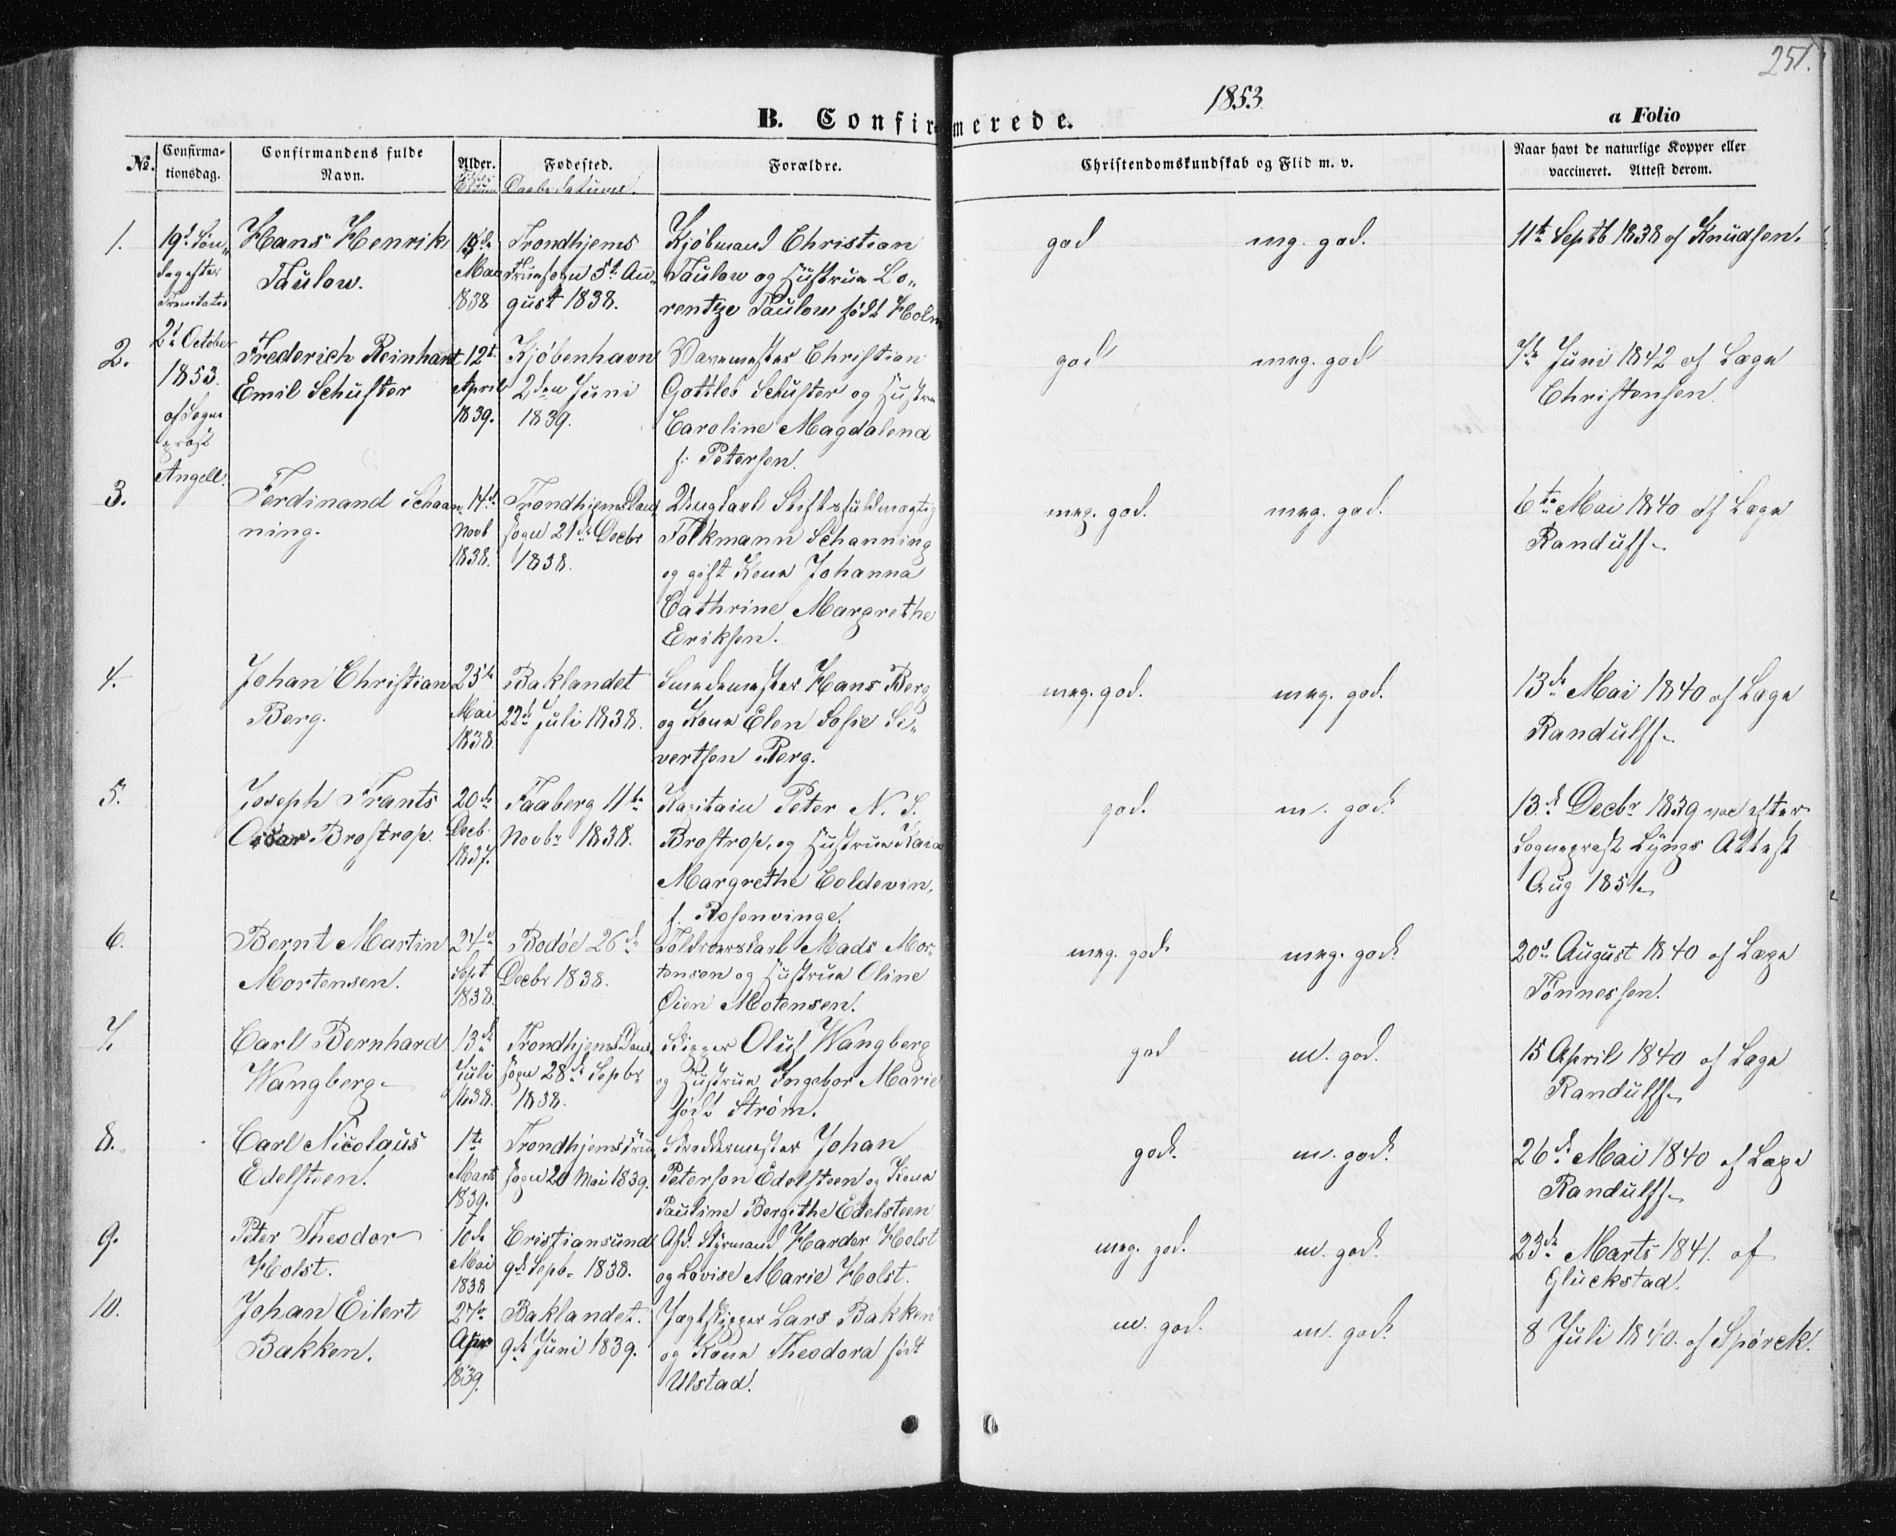 251.
1853
B. Confirmerede.
a Folio
No.
Confirma-
tionsdag.
Confirmandens fulde
Navn.
Alder.
Datum
Fødested.
Daabs Datum.
Forældre.
Christendomskundskab og Flid m. v.
Naar havt de naturlige Kopper eller
vaccineret. Attest derom.
19d Søn-
dag efter
Trinitatis
2d October
1853.
af Sogne
prest
Angell.
1.
Hans Henrik
Taulow.
19de
Mai
1838
Trondhjems
Fruesogn 5t Au-
gust 1838.
Kjøbmand Christian
Taulow og Hustrue Lo-
rentze Taulow født Holm
god
meg. god.
11te Septb 1838 af Knudsen.
2.
Frederich Reinhart
Emil Schuster
12t
April
1839.
Kjøbenhavn
2den Juni
1839.
Varemester Christian
Gottlob Schuster og Hustru
Caroline Magdalena
f. Petersen.
god
meg. god
7de Juni 1842 af Læge
Christensen.
3.
Ferdinand Schan-
ning.
14d
Novb
1838.
Trondhjems Dom
sogn 21de Decbr
1838.
Ungkarl Stiftsfuldmægtig
Folkmann Schanning
og gift Kone Johanna
Cathrine Margrethe
Eriksen.
meg. god.
meg. god.
6te Mai 1840 af Læge
Randulff
4.
Johan Christian
Berg.
25te
Mai
1838
Baklandet
22d Juli 1838.
Smedemester Hans Berg
og Kone Elen Sofie Si-
vertsen Berg.
meg. god.
meg. god.
13de Mai 1840 af Læge
Randulff
5.
Joseph Frants
Oscar Brostrop.
20de
Decb.
1837.
Faaberg 11te
Novbr 1838.
Kapitain Peter N. S.
Brostrop, og Hustrue Kaia
Margrethe Coldevin,
f. Rosenvinge.
god.
m. god.
13d Decbr 1839 vac efter
Sogneprest Lyngs Attest
Aug 1851
6.
Bernt Martin
Mortensen.
24de
Sept.
1838.
Bodøe 26de
Decbr 1838.
Toldroerskarl Mads Mor-
tensen og Hustrue Oline
Øien Motensen.
meg. god
meg. god.
20d August 1840 af Læge
Tønnessen.
7.
Carl Bernhard
Wangberg
13de
Juli
1838.
Trondhjems Dom
sogn 28de Sepbr
1838.
Skipper Oluf Wangberg
og Hustrue Ingebor Marie
født Strøm.
god
m. god.
15 April 1840 af Læge
Randulff
8.
Carl Nicolaus
Edelsteen.
1te
Marts
1839.
Trondhjems Frue
sogn 20 Mai 1839.
Skreddermester Johan
Peterson Edelsteen og Kone
Pauline Bergithe Edelsteen
god.
m. god.
26de Mai 1840 af Læge
Randulff
9.
Peter Theodor
Holst.
10de
Mai
1838
Cristiansund
9de Sepb. 1838.
Afd. Styrmand Harder Holst
og Lovise Marie Holst.
meg. god.
m. god.
23de Marts 1841. af
Gluckstad.
10.
Johan Eilert
Bakken.
27de
Apr
1839.
Baklandet.
9de Juni 1839.
Jægtskipper Lars Bakken
og Kone Theodora født
Ulstad.
m. god.
m. god.
8 Juli 1840. af Spørck.